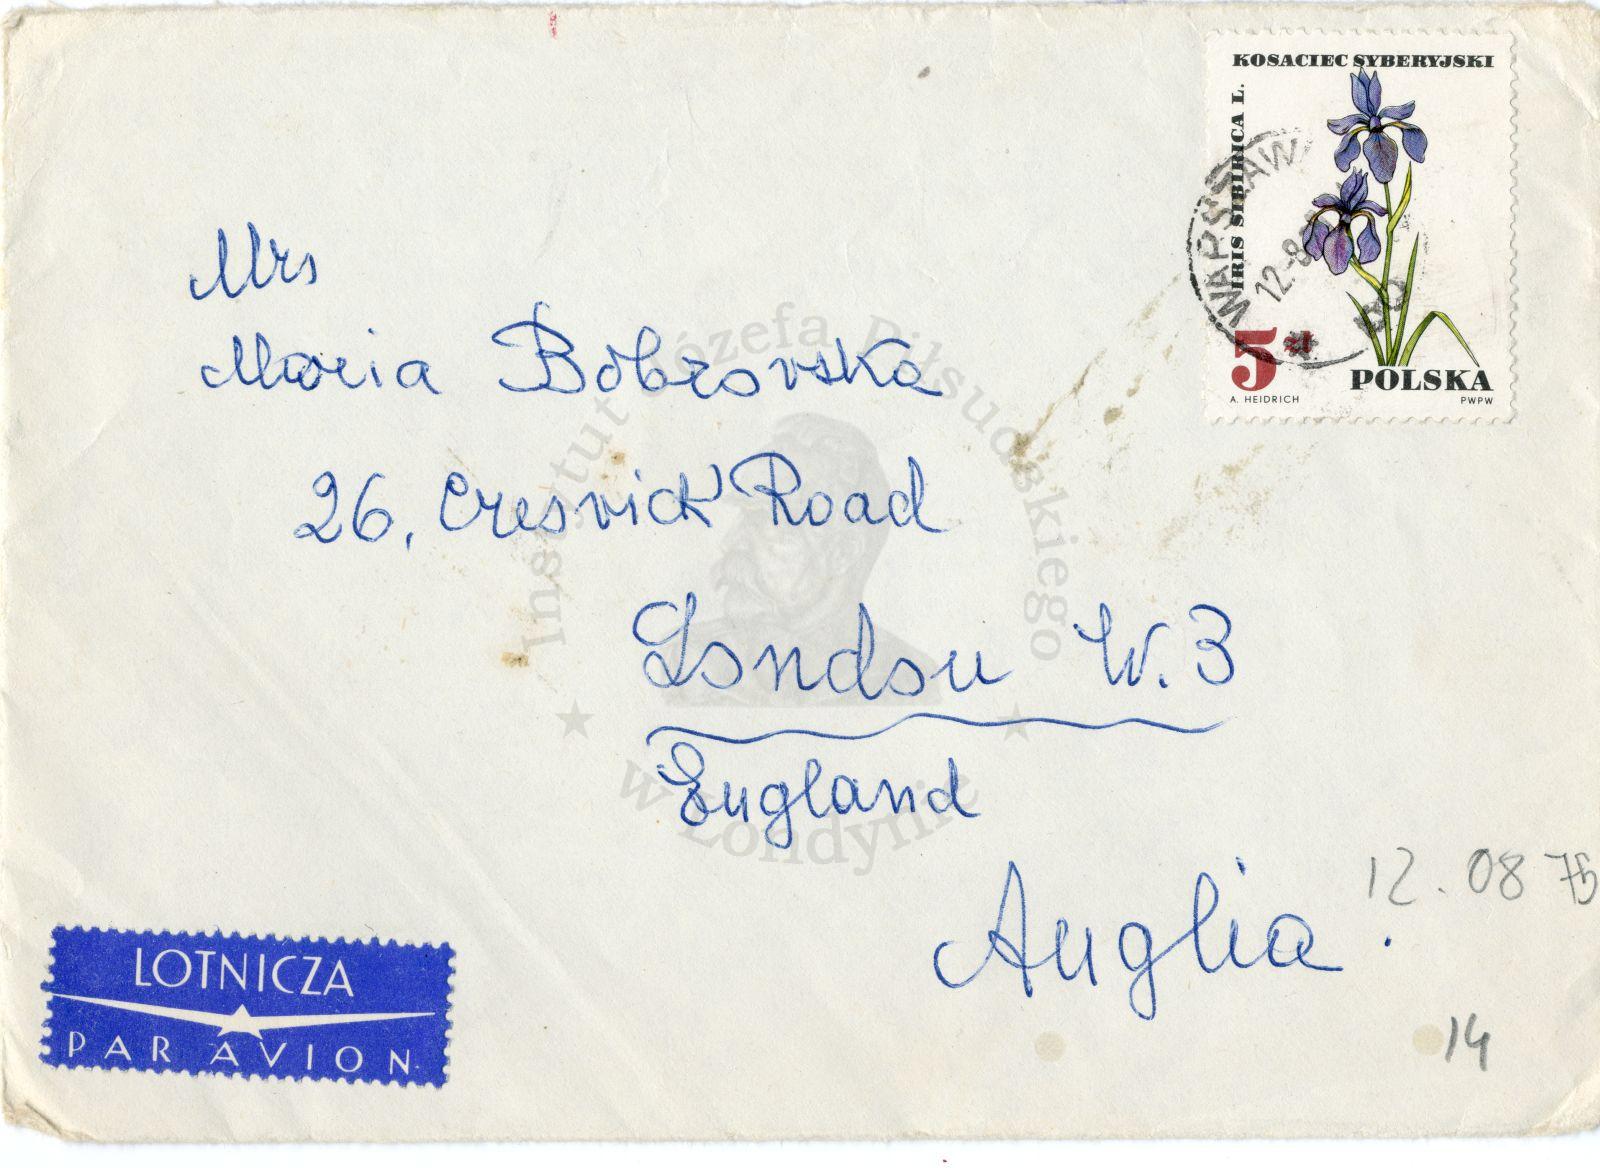 KOSACIEC SYBERYJSKI
IRIS SIBIRICA L.
WARSZAW
12.-8
5 zł
POLSKA
A. HEIDRICH
PWPW
Mrs
Maria Bobrovska
26, Cresvick Road
London W.3
England
Anglia
12.08 75
14
LOTNICZA
PAR AVION
Instytut Józefa Piłsudskiego
w Londynie